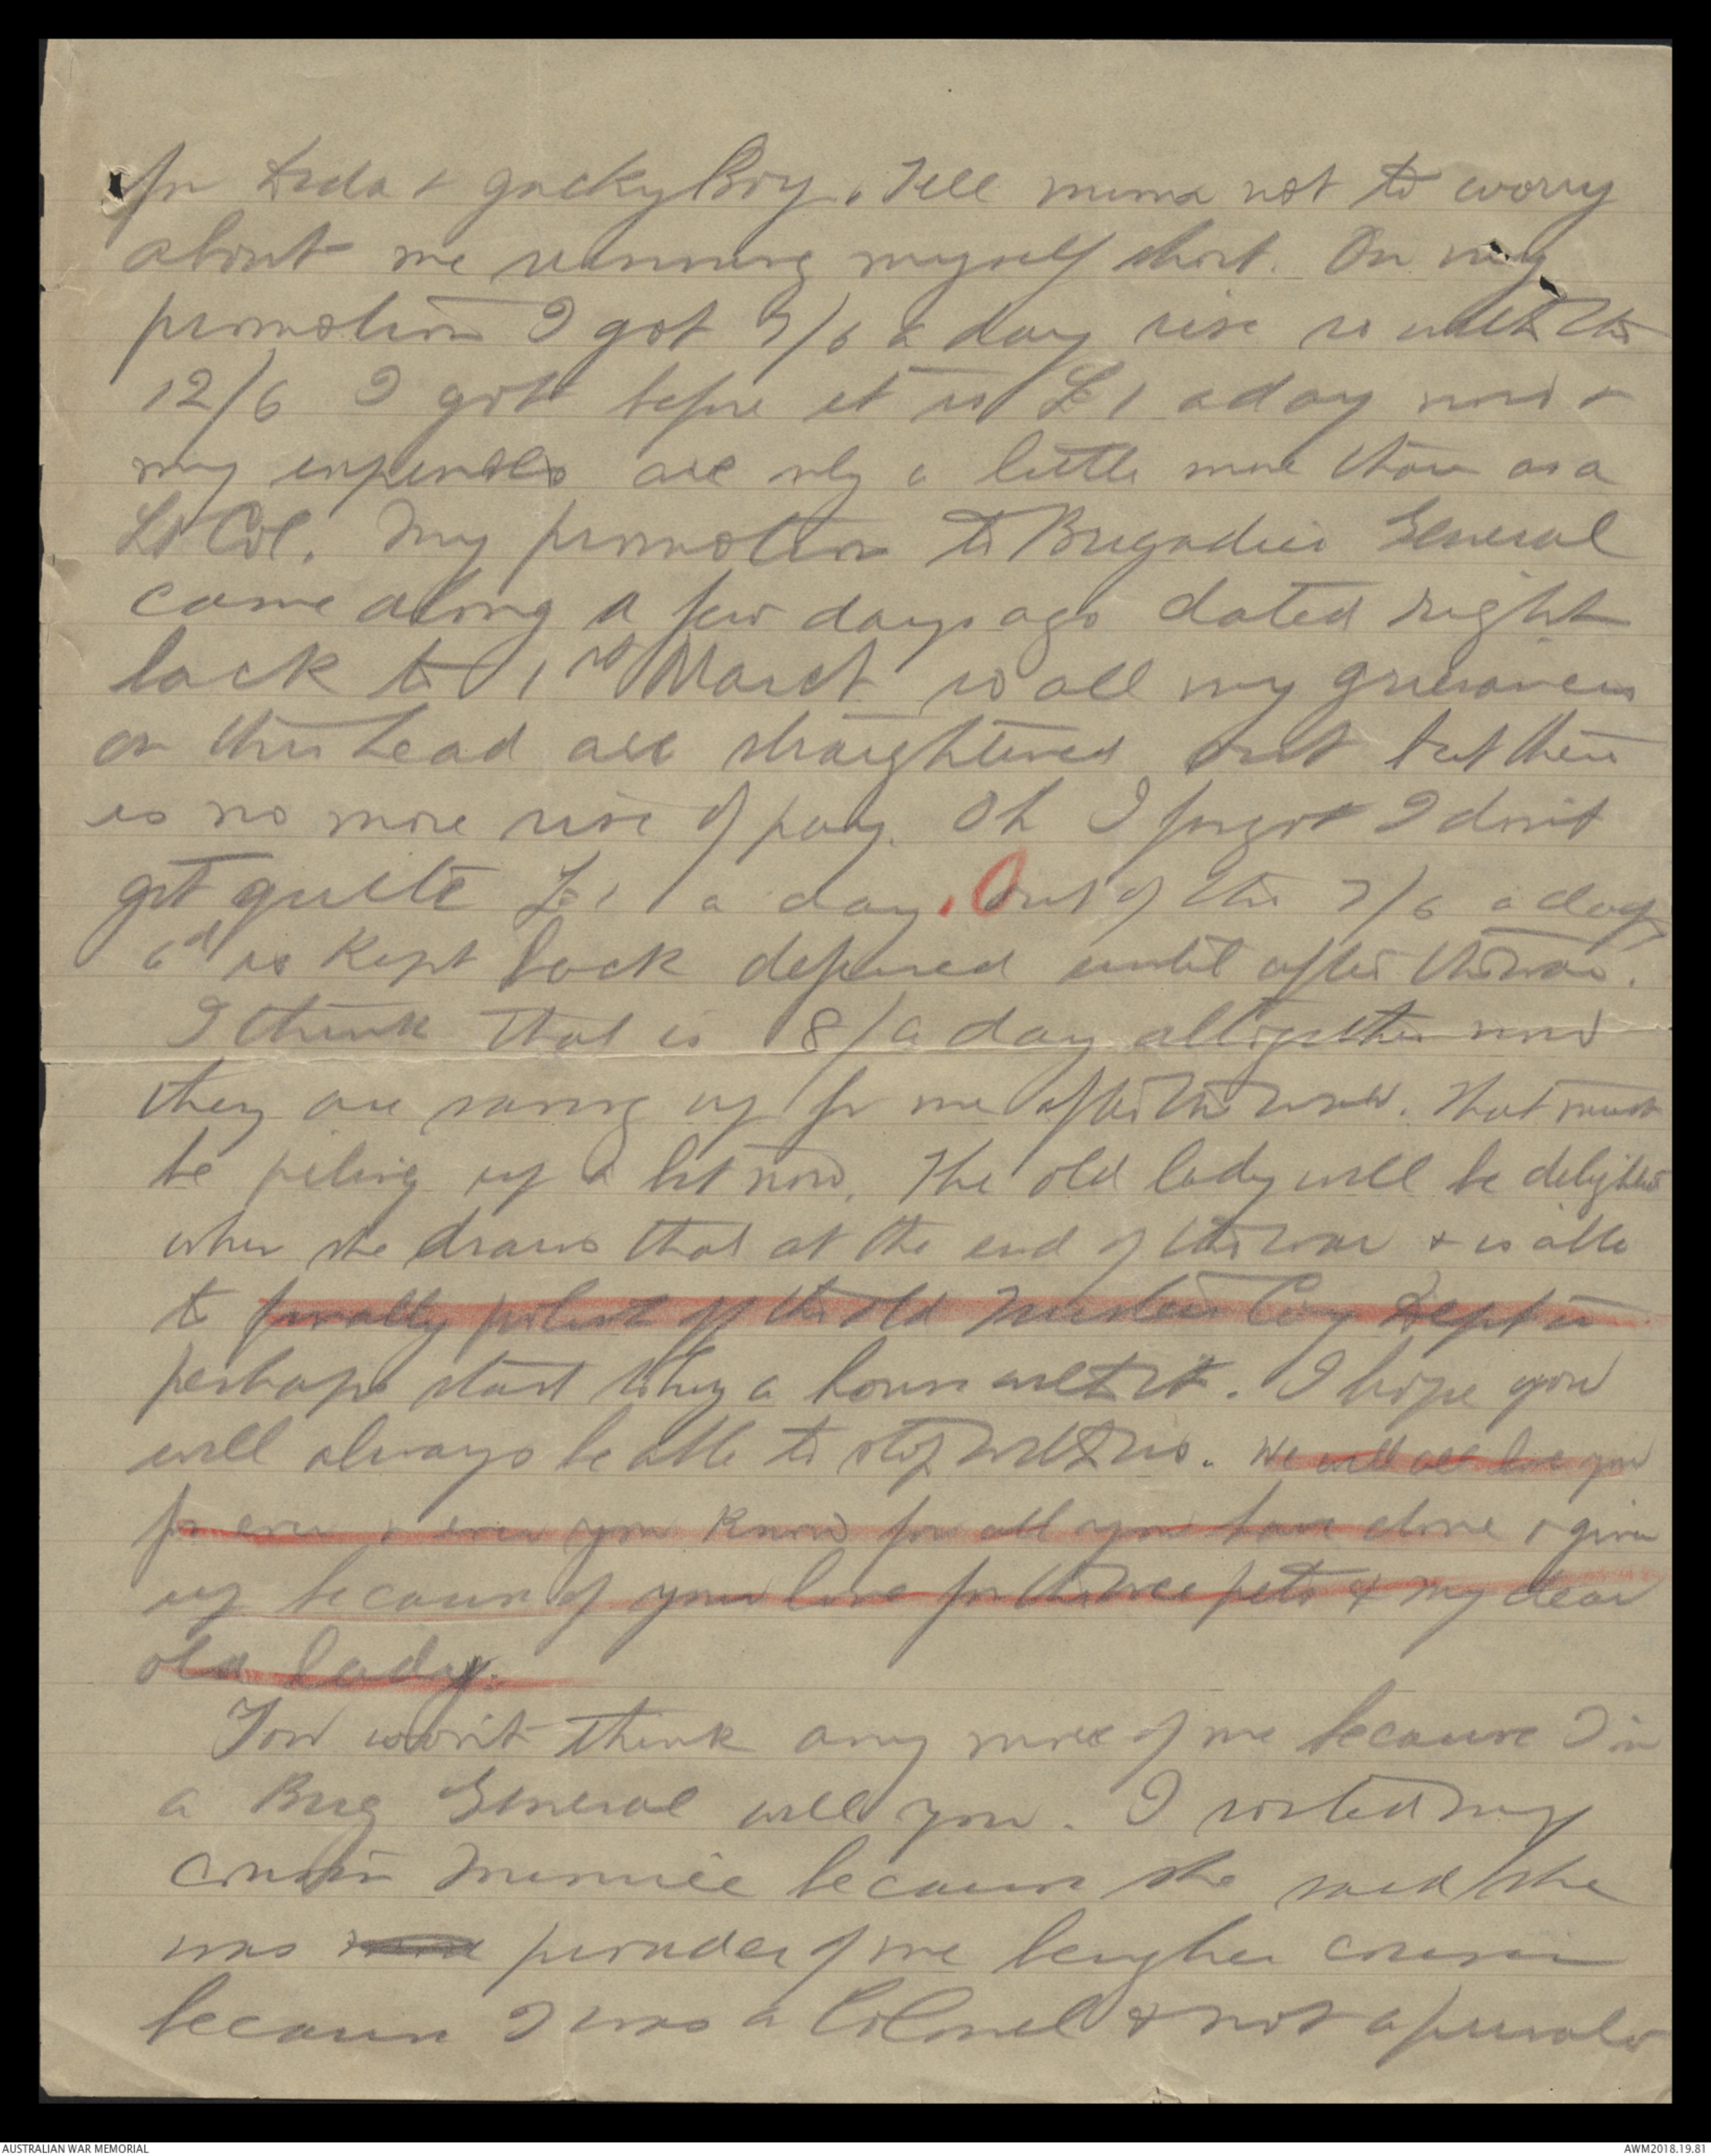 for Dida & Jackyboy. Tell mima not to worry
about me running myself short. On my
promotion I got 7/6 a day rise so with the
12/6 I got before it is £1 a day now &
my expenses are only a little more than as a
Lt Col. My promotion to Brigadier General
came along a few days ago dated right
back to 1st March so all my grievances
on this head are straightened out but there
is no more rise of pay. Oh I forgot I don't
get quite £1 a day. Out of the 7/6 a day
6d is kept back deferred until after the war.
I think that is 8/ a day altogether now
they are saving up for me after the war. That must
be piling up a bit now. The old lady will be delighted
when she draws that at the end of the war & is able
to finally polish off the old Coy Dept or
perhaps start to buy a house with it. I hope you
will always be able to stop with us. We will all love you
for ever & ever you know for all you have done & given
up because of your love for the wee pets & my dear
old lady.
You won't think any more of me because I'm
a Brig General will you. I my
cousin Minnie because she said she
was prouder of me being her cousin
because I was a Colonel & not a private